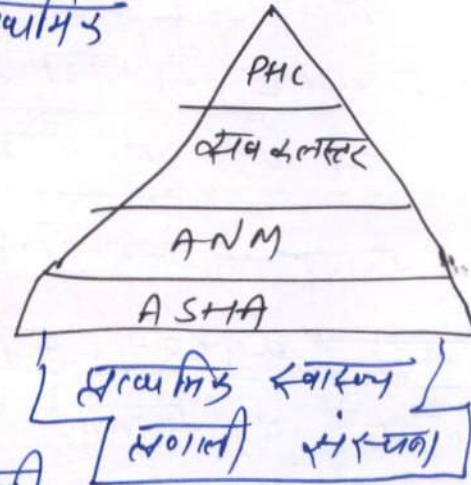 PHC
सब क्लस्टर
ANM
ASHA
प्राथमिक स्वास्थ्य
प्रणाली संरचना